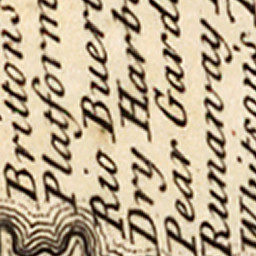 Brittons
Platform
Rio Buen
Dry Harb
Pear Gard
Runaway
Whitson's